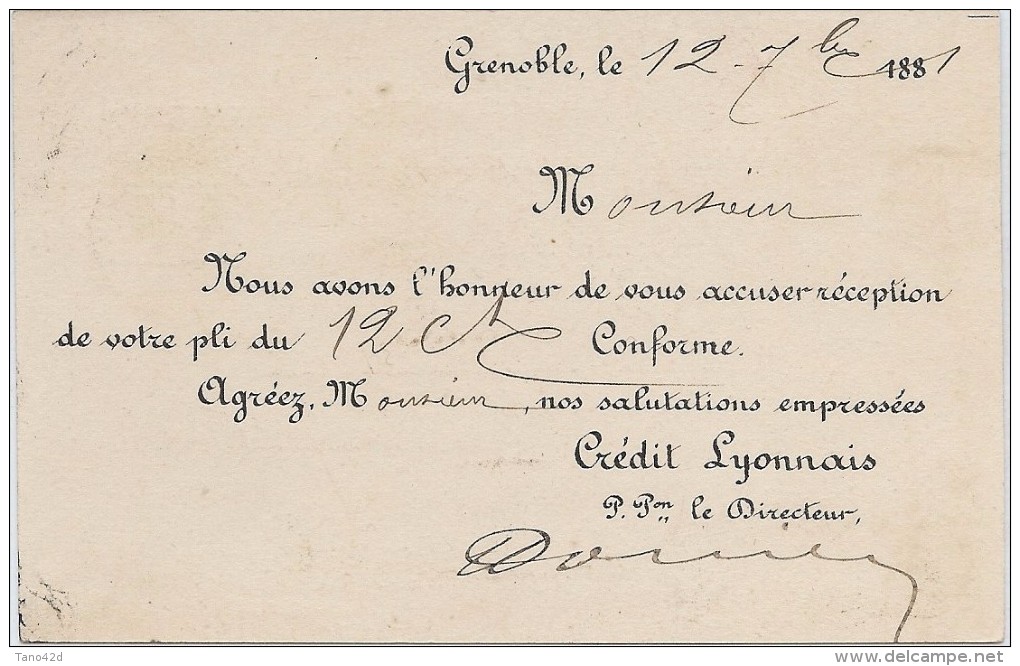 Grenoble, le 12 7bre 1881
Monsieur
Nous avons l'honneur de vous accuser réception
de votre pli du 12 Ct Conforme.
Agréez, Monsieur, nos salutations empressées
Crédit Lyonnais
P. Pon le Directeur,
Tano42d
delcampe.net